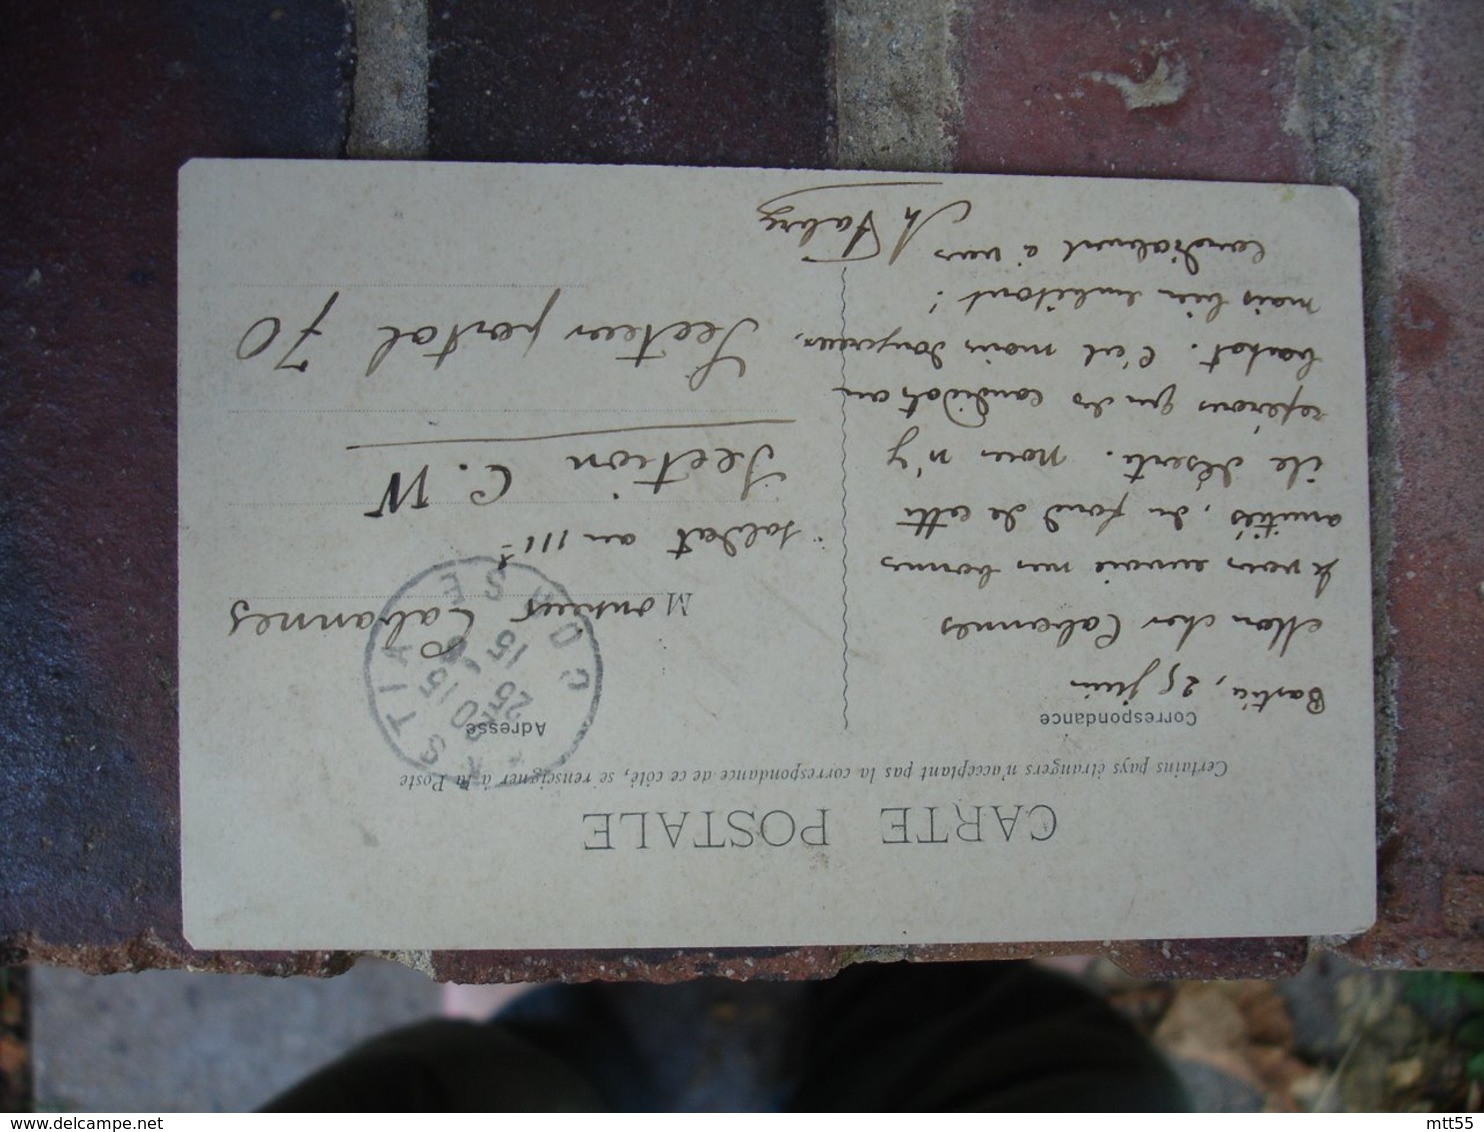 CARTE POSTALE
Certains pays étrangers n'acceptant pas la correspondance de ce côté, se renseigner à la Poste
Correspondance
Bastia, 25 juin
Mon cher Cabannes
Je vous envoie mes bonnes
amitiés, du fond de cette
île déserte. Nous n'y
repérons que des
bastot. C'est moins dangereux,
mais bien embêtant !
Cordialement à vous
M Fabre
Adresse
Monsieur Cabannes
soldat au 111e
Section C.W
Secteur postal 70
BASTIA CORSE
20 15
25
15
delcampe.net
mtt55